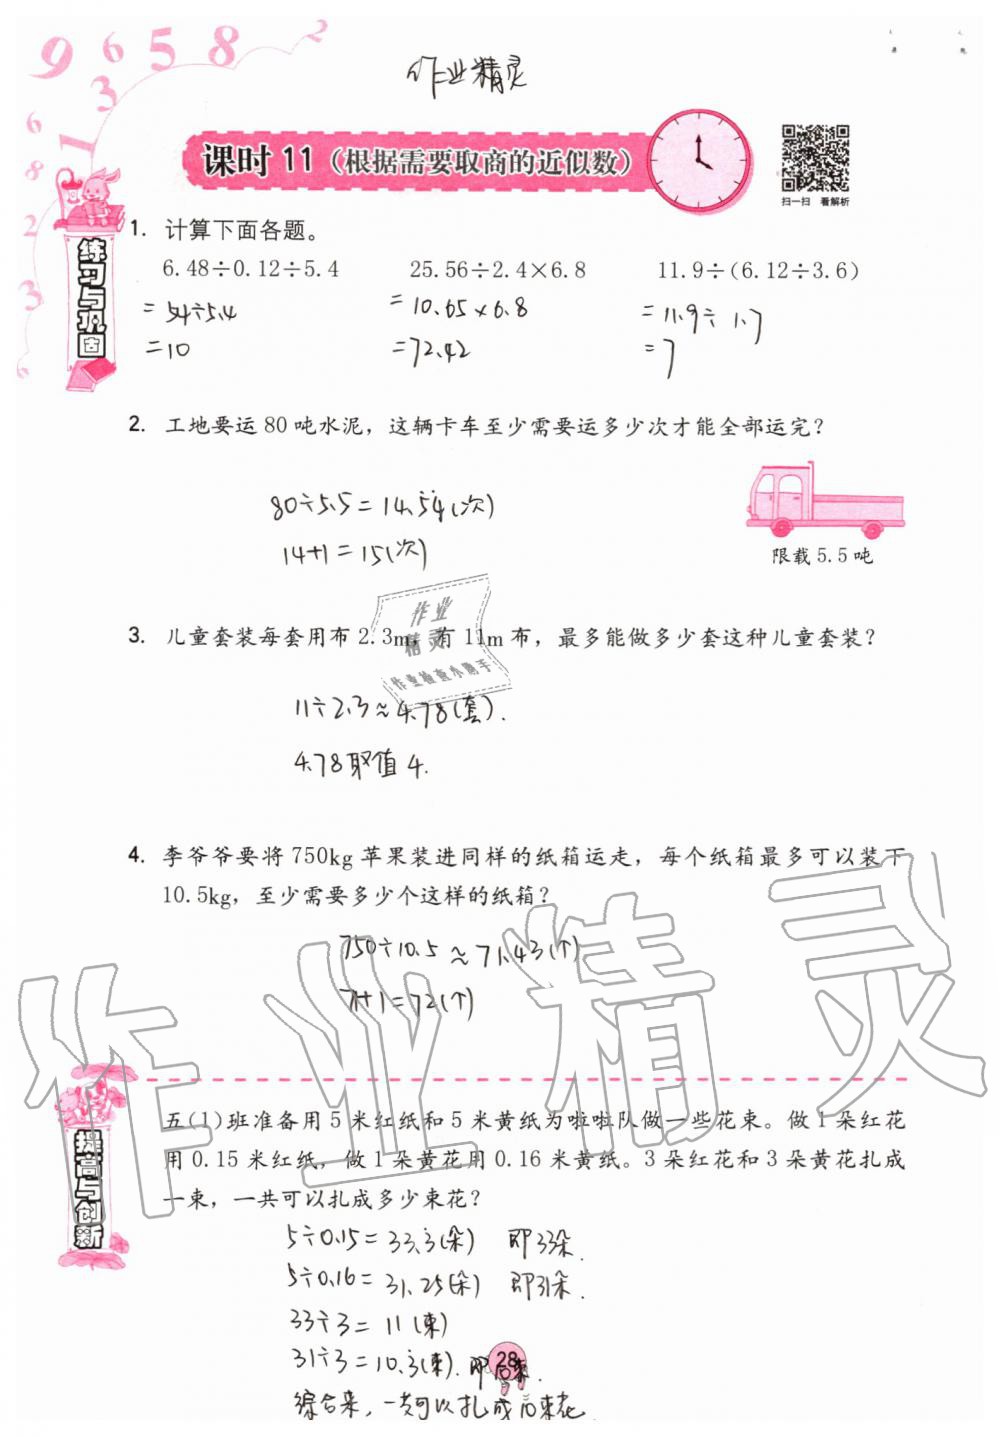 9 6 5 8 2
3
1
6
8
2
3
作业精灵
课时 11（根据需要取商的近似数）
扫一扫 看解析
练习与巩固
1. 计算下面各题。
6.48÷0.12÷5.4 25.56÷2.4×6.8 11.9÷(6.12÷3.6)
=54÷5.4 =10.65×6.8 =11.9÷1.7
=10 =72.42 =7
2. 工地要运 80 吨水泥，这辆卡车至少需要运多少次才能全部运完？
80÷5.5=14.5̇4̇(次)
14+1=15(次)
限载 5.5 吨
3. 儿童套装每套用布 2.3m，有 11m 布，最多能做多少套这种儿童套装？
作业
精灵
作业检查小助手
11÷2.3≈4.78(套).
4.78取值4.
4. 李爷爷要将 750kg 苹果装进同样的纸箱运走，每个纸箱最多可以装下
10.5kg，至少需要多少个这样的纸箱？
750÷10.5≈71.43(个)
71+1=72(个)
作业精灵
提高与创新
五(1)班准备用 5 米红纸和 5 米黄纸为啦啦队做一些花束。做 1 朵红花
用 0.15 米红纸，做 1 朵黄花用 0.16 米黄纸。3 朵红花和 3 朵黄花扎成
一束，一共可以扎成多少束花？
5÷0.15=33.3̇(朵) 即33朵.
5÷0.16=31.25(朵) 即31朵.
33÷3=11(束)
31÷3=10.3̇(束). 即10束.
28
综合来，一共可以扎成10束花.